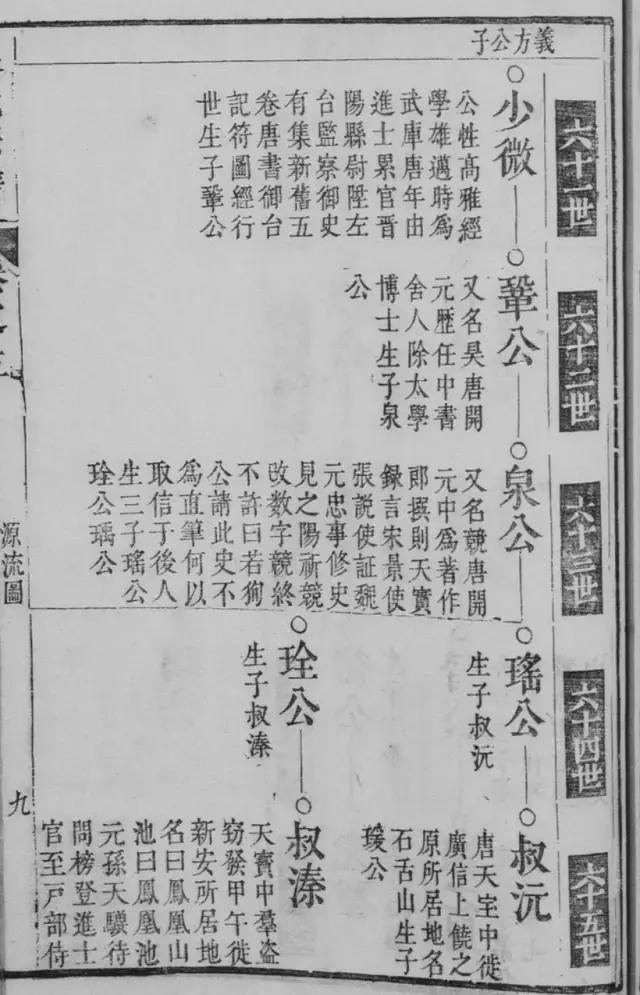 義方公子
六十一世
少微
公性高雅經
學雄邁時爲
武庫唐年由
進士累官晋
陽縣尉陞左
台監察御史
有集新舊五
卷唐書御台
記符圖經行
世生子鞏公
六十二世
鞏公
又名昊唐開
元歷任中書
舍人除太學
博士生子泉
公
六十三世
泉公
又名競唐開
元中爲著作
郎撰則天實
錄言宋景使
張説使証魏
元忠事修史
見之陽祈競
改数字競終
不許曰若狥
公請此史不
爲直筆何以
取信于後人
生三子瑤公
珪公瑀公
六十四世
瑤公
生子叔沅
珪公
生子叔溱
六十五世
叔沅
唐天宝中徙
廣信上饒之
原所居地名
石舌山生子
瑗公
叔溱
天寶中羣盗
窃發甲午徙
新安所居地
名曰鳳凰山
池曰鳳凰池
元孫天驥待
問榜登進士
官至戸部侍
源流圖
九